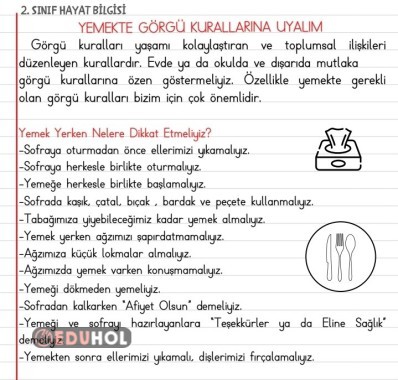 2. SINIF HAYAT BİLGİSİ
YEMEKTE GÖRGÜ KURALLARINA UYALIM
Görgü kuralları yaşamı kolaylaştıran ve toplumsal ilişkileri
düzenleyen kurallardır. Evde ya da okulda ve dışarıda mutlaka
görgü kurallarına özen göstermeliyiz. Özellikle yemekte gerekli
olan görgü kuralları bizim için çok önemlidir.
Yemek Yerken Nelere Dikkat Etmeliyiz?
-Sofraya oturmadan önce ellerimizi yıkamalıyız.
-Sofraya herkesle birlikte oturmalıyız.
-Yemeğe herkesle birlikte başlamalıyız.
-Sofrada kaşık, çatal, bıçak , bardak ve peçete kullanmalıyız.
-Tabağımıza yiyebileceğimiz kadar yemek almalıyız.
-Yemek yerken ağzımızı şapırdatmamalıyız.
-Ağzımıza küçük lokmalar almalıyız.
-Ağzımızda yemek varken konuşmamalıyız.
-Yemeği dökmeden yemeliyiz.
-Sofradan kalkarken "Afiyet Olsun" demeliyiz.
-Yemeği ve sofrayı hazırlayanlara "Teşekkürler ya da Eline Sağlık"
demeliyiz.
EDUHOL
-Yemekten sonra ellerimizi yıkamalı, dişlerimizi fırçalamalıyız.